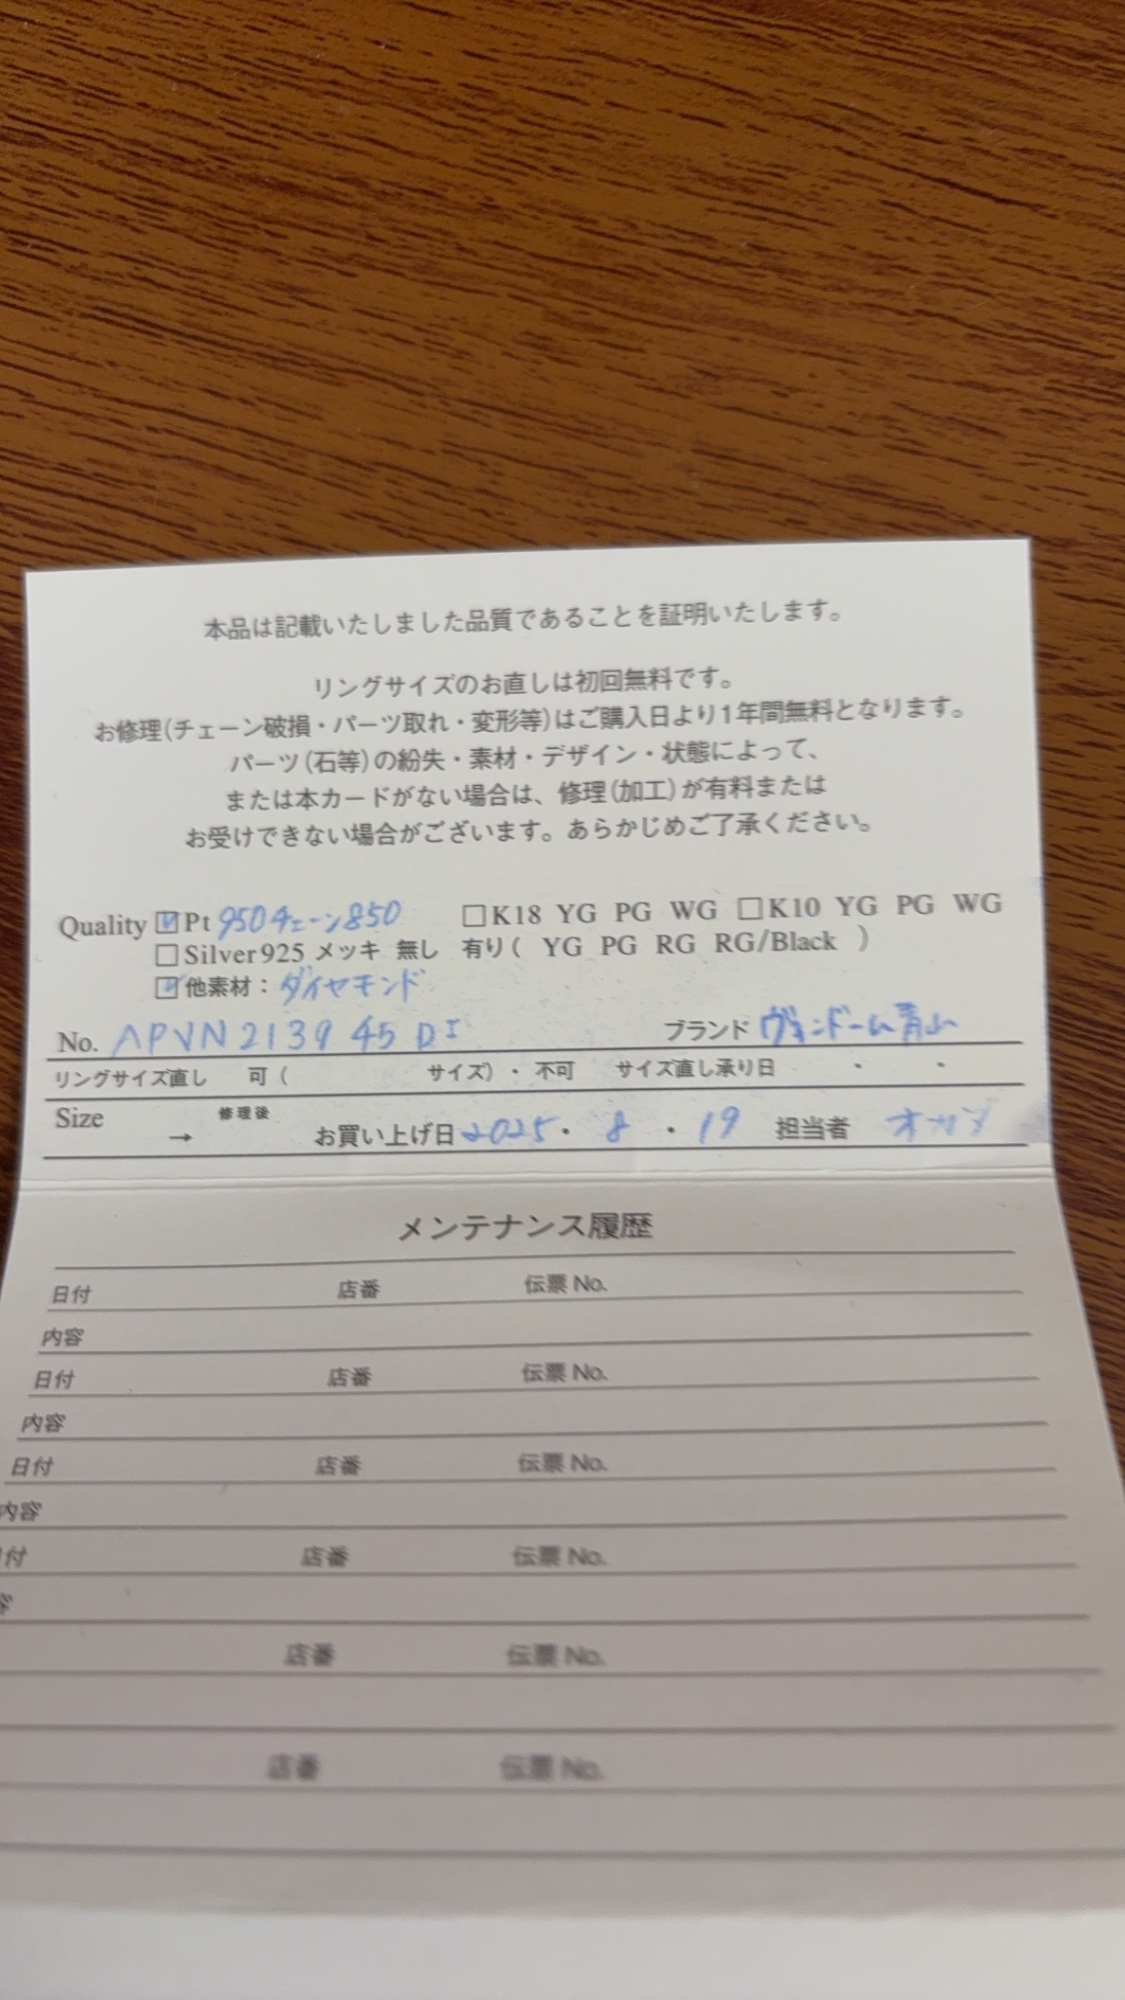 本品は記載いたしました品質であることを証明いたします。
リングサイズのお直しは初回無料です。
お修理(チェーン破損・パーツ取れ・変形等)はご購入日より1年間無料となります。
パーツ(石等)の紛失・素材・デザイン・状態によって、
または本カードがない場合は、修理(加工)が有料または
お受けできない場合がございます。あらかじめご了承ください。
Quality ☑Pt 950チェーン850 □K18 YG PG WG □K10 YG PG WG
□Silver925 メッキ 無し 有り( YG PG RG RG/Black )
☑他素材：ダイヤモンド
No. APVN2139 45 DI ブランド ヴァンドーム青山
リングサイズ直し 可( サイズ)・不可 サイズ直し承り日 ・ ・
Size → 修理後 お買い上げ日 2025・8・19 担当者
メンテナンス履歴
日付 店番 伝票 No.
内容
日付 店番 伝票 No.
内容
日付 店番 伝票 No.
内容
付 店番 伝票 No.
店番 伝票 No.
店番 伝票 No.